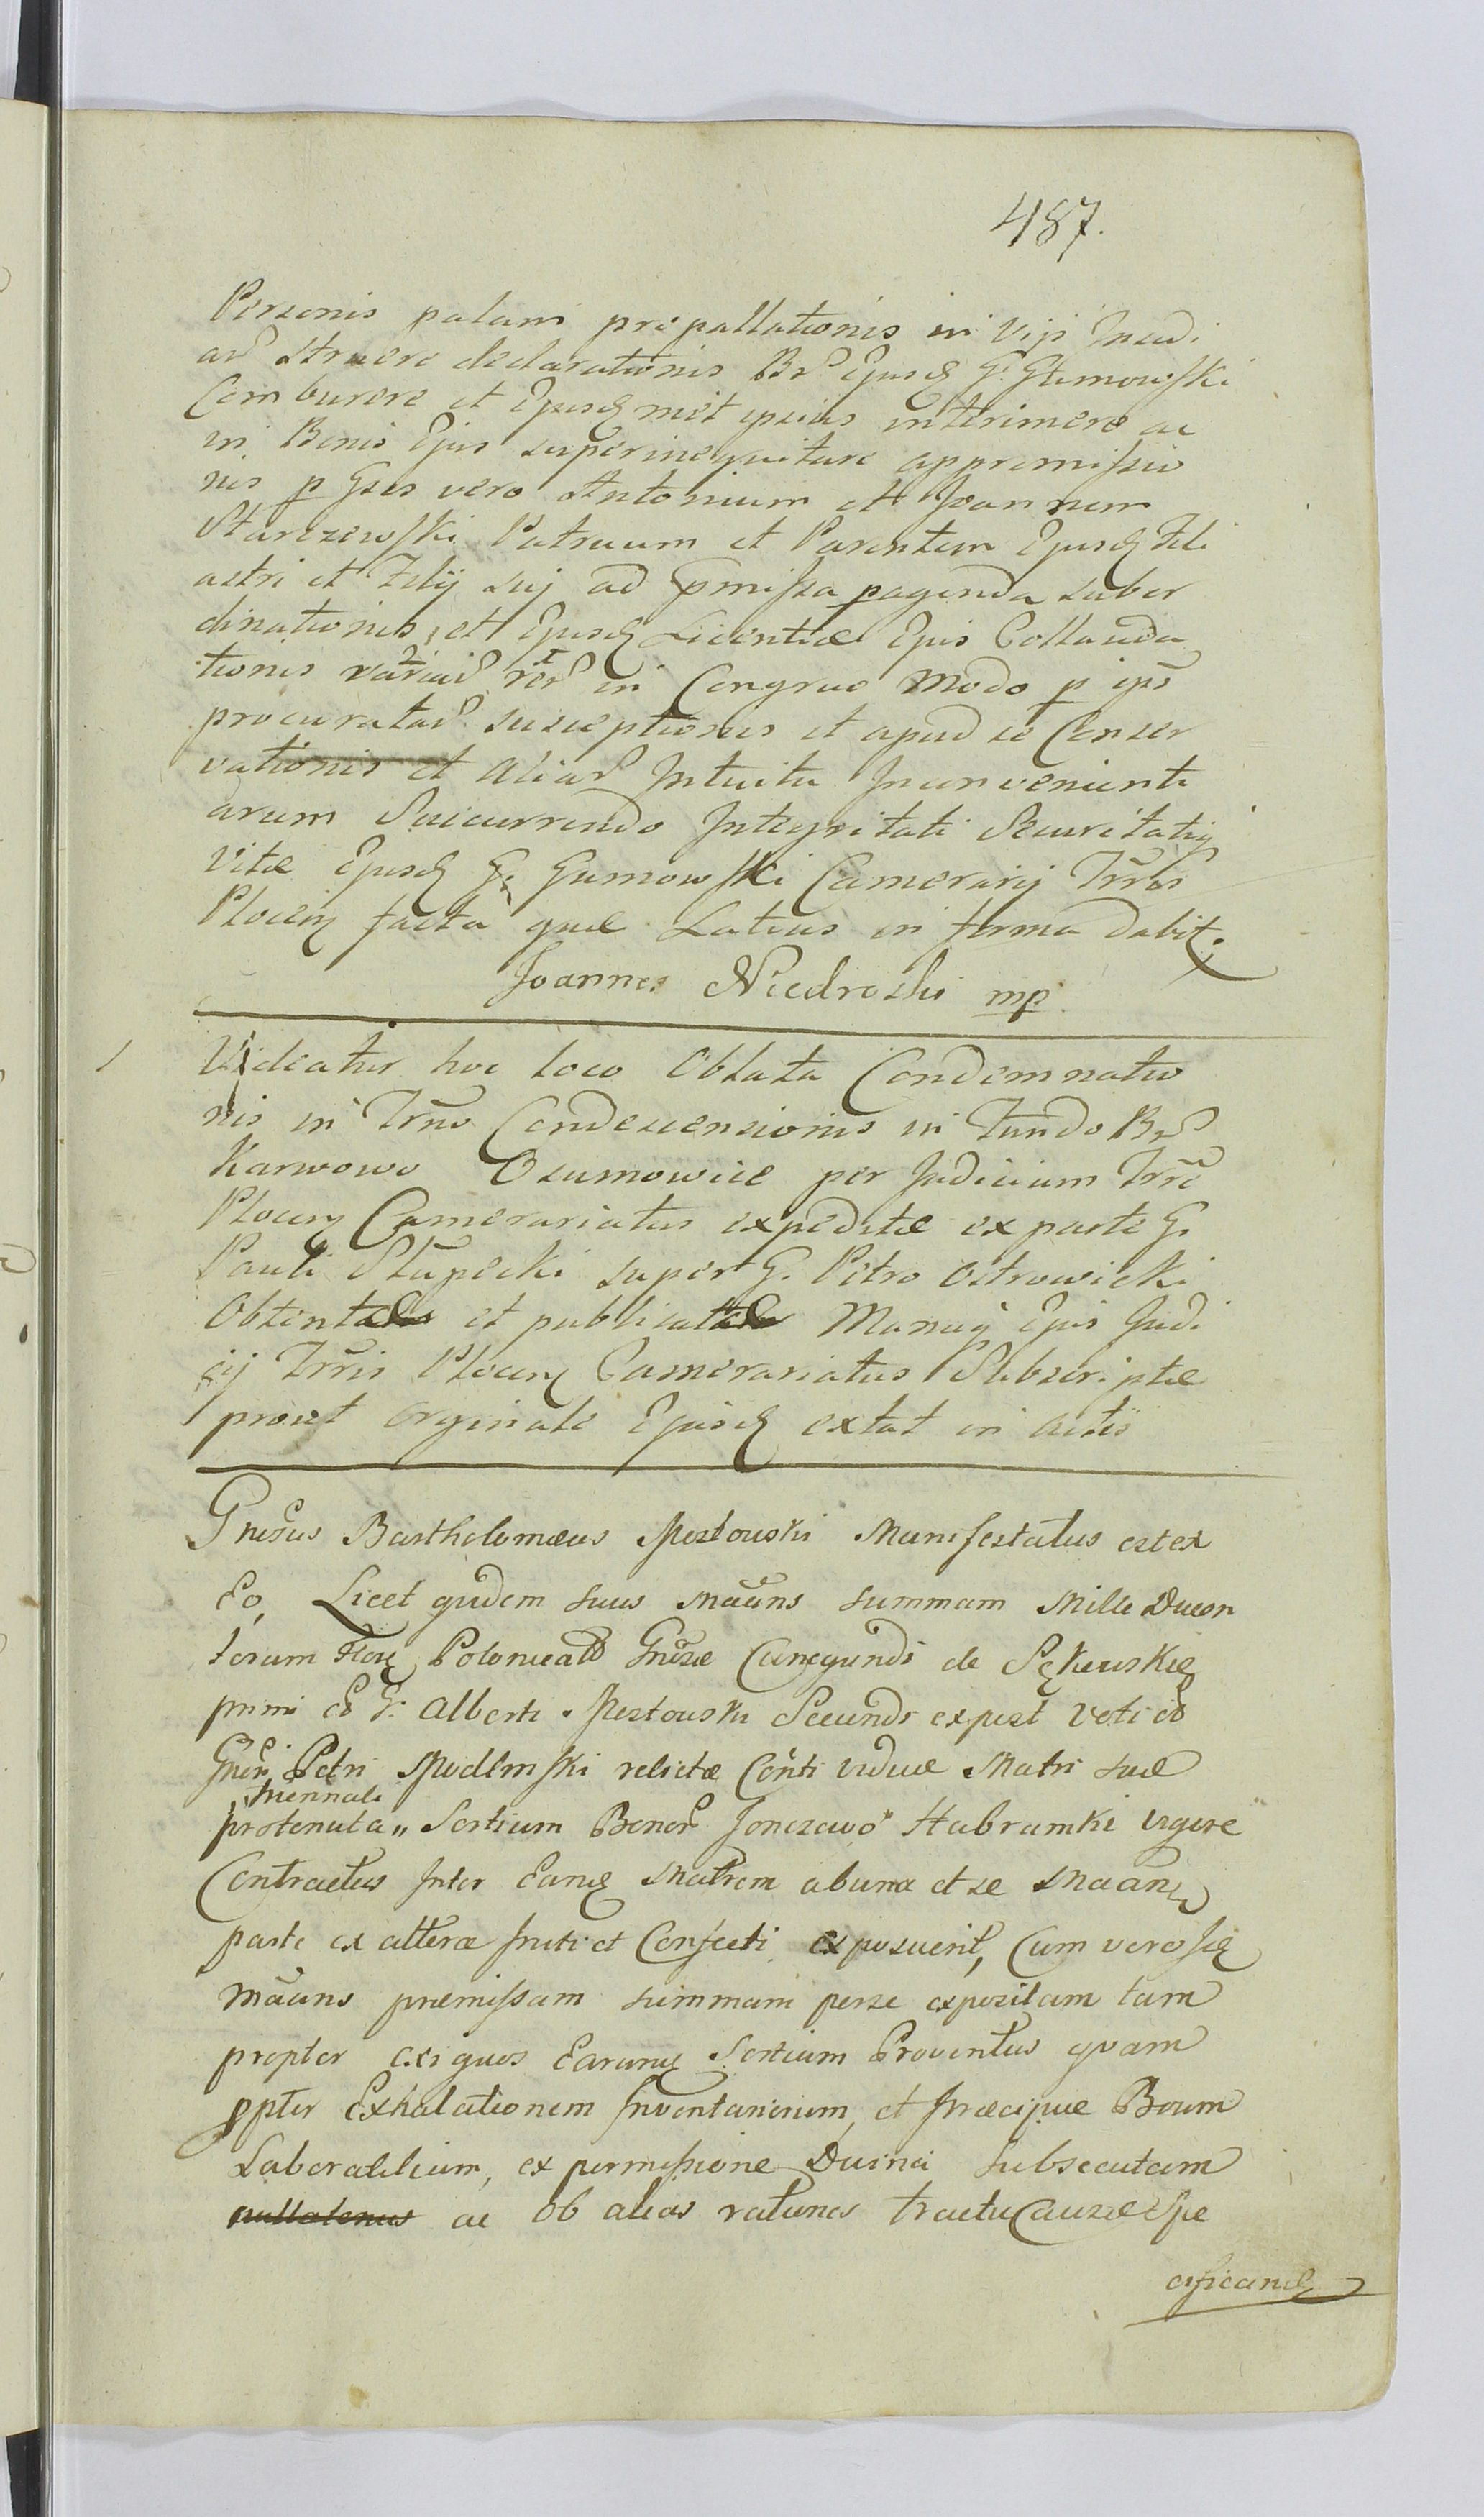 487.
Personis palam propallationis in Vijs Incidi
ac struere declarationis Br Ejusd G. Gumowski
Comburere et Ejusdmet ipsius interimere ac
in Bonis Ejus superinequitare appromissio
nis p Gsos vero Antonium et Joannem
Starczewski Patruum et Parentem Ejusd Fili
astri et Filij sui ad pmissa pagenda subor
dinationis, et Ejusd Licentiae Ejus Collauda
tionis variar rer in Congruo Modo p ips
procuratar susceptionis et apud se Conser
vationis et aliar Intuitu Inconvenienti
arum Succurrendo Integritati Securitatiq
Vitae Ejusd G. Gumowski Camerarij Trris
Plocen facta quae Latius in forma dabit.
Joannes Niedroski mp
Videatur hoc loco Oblata Condemnatio
nis in Trno Condescensionis in Fundo Br
Karwowo Osumowice per Judicium Trre
Plocen Camerariatus expeditae ex parte G.
Pauli Słupecki super G. Petro Ostrowicki
Obtentae et publicatae Manuq Ejus Judi
cij Trris Plocen Camerariatus Subscriptae
prout orginale Ejusd extat in actis
Gnrosus Bartholomaeus Mestouski Manifestatus est ex
Eo, Licet quidem suus Maans summam Mille Ducen
torum Flor Polonicales Gnosae Cunegundi de
primi et G. Alberti Mestouski Secundi expost Voti et
Gnosi Petri Modlinski relictae Conti viduae Matri suae
triennali
pro tenuta" Sortium Bonor Jonczewo Habramki vigore
Contractus Inter Eand Matrem ab una et se Maan
parte ex altera Initi et Confecti exposuerit, Cum vero
Maans praemissam summam per se expositam tam
propter exiguos Earund Sortium Proventus quam
ppter Exhalationem Inventariorum, et praecipue Boum
Laboratilium, ex permissione Divina subsecutam
nullatenus ac ob alias rationes tractu Causae spe
cificand